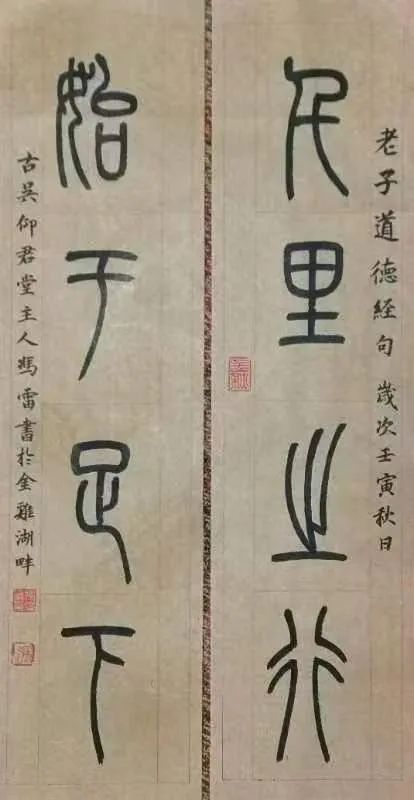 老子道德経句 歲次壬寅秋日
千里之行
始于足下
古吴仰君堂主人馮雷書於金雞湖畔